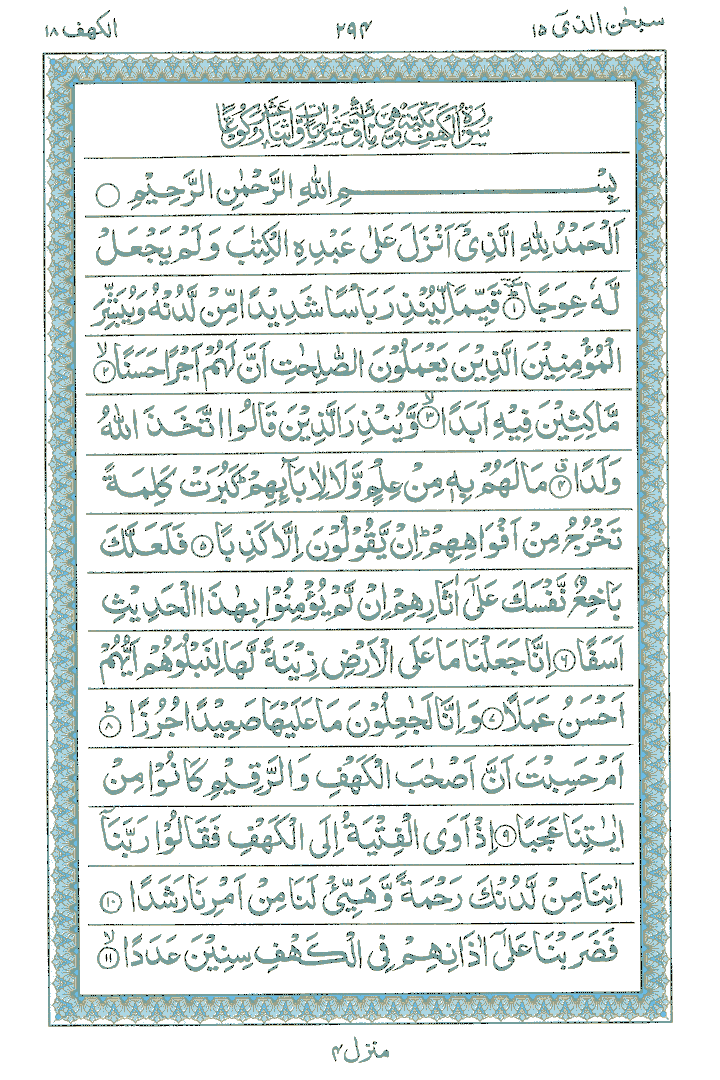 سبحٰن الذیٓ ۱۵ ۲۹۴ الكهف ۱۸
سُوْرَةُ الْكَهْفِ مَكِّيَّةٌ وَّهِيَ مِائَةٌ وَّعَشْرُ اٰيَاتٍ وَّاثْنَتَا عَشَرَ رُكُوْعًا
بِسْمِ اللّٰهِ الرَّحْمٰنِ الرَّحِيْمِ
اَلْحَمْدُ لِلّٰهِ الَّذِيْٓ اَنْزَلَ عَلٰى عَبْدِهِ الْكِتٰبَ وَ لَمْ يَجْعَلْ
لَّهٗ عِوَجًا ؕ۱ قَيِّمًا لِّيُنْذِرَ بَاْسًا شَدِيْدًا مِّنْ لَّدُنْهُ وَيُبَشِّرَ
الْمُؤْمِنِيْنَ الَّذِيْنَ يَعْمَلُوْنَ الصّٰلِحٰتِ اَنَّ لَهُمْ اَجْرًا حَسَنًا ۙ۲
مَّاكِثِيْنَ فِيْهِ اَبَدًا ۙ۳ وَّيُنْذِرَ الَّذِيْنَ قَالُوا اتَّخَذَ اللّٰهُ
وَلَدًا ۗ۴ مَا لَهُمْ بِهٖ مِنْ عِلْمٍ وَّلَا لِاٰبَآئِهِمْ ؕ كَبُرَتْ كَلِمَةً
تَخْرُجُ مِنْ اَفْوَاهِهِمْ ؕ اِنْ يَّقُوْلُوْنَ اِلَّا كَذِبًا ۵ فَلَعَلَّكَ
بَاخِعٌ نَّفْسَكَ عَلٰٓى اٰثَارِهِمْ اِنْ لَّمْ يُؤْمِنُوْا بِهٰذَا الْحَدِيْثِ
اَسَفًا ۶ اِنَّا جَعَلْنَا مَا عَلَى الْاَرْضِ زِيْنَةً لَّهَا لِنَبْلُوَهُمْ اَيُّهُمْ
اَحْسَنُ عَمَلًا ۷ وَ اِنَّا لَجٰعِلُوْنَ مَا عَلَيْهَا صَعِيْدًا جُرُزًا ؕ۸
اَمْ حَسِبْتَ اَنَّ اَصْحٰبَ الْكَهْفِ وَ الرَّقِيْمِ كَانُوْا مِنْ
اٰيٰتِنَا عَجَبًا ۹ اِذْ اَوَى الْفِتْيَةُ اِلَى الْكَهْفِ فَقَالُوْا رَبَّنَآ
اٰتِنَا مِنْ لَّدُنْكَ رَحْمَةً وَّهَيِّئْ لَنَا مِنْ اَمْرِنَا رَشَدًا ۱۰
فَضَرَبْنَا عَلٰٓى اٰذَانِهِمْ فِى الْكَهْفِ سِنِيْنَ عَدَدًا ۙ۱۱
منزل ۴